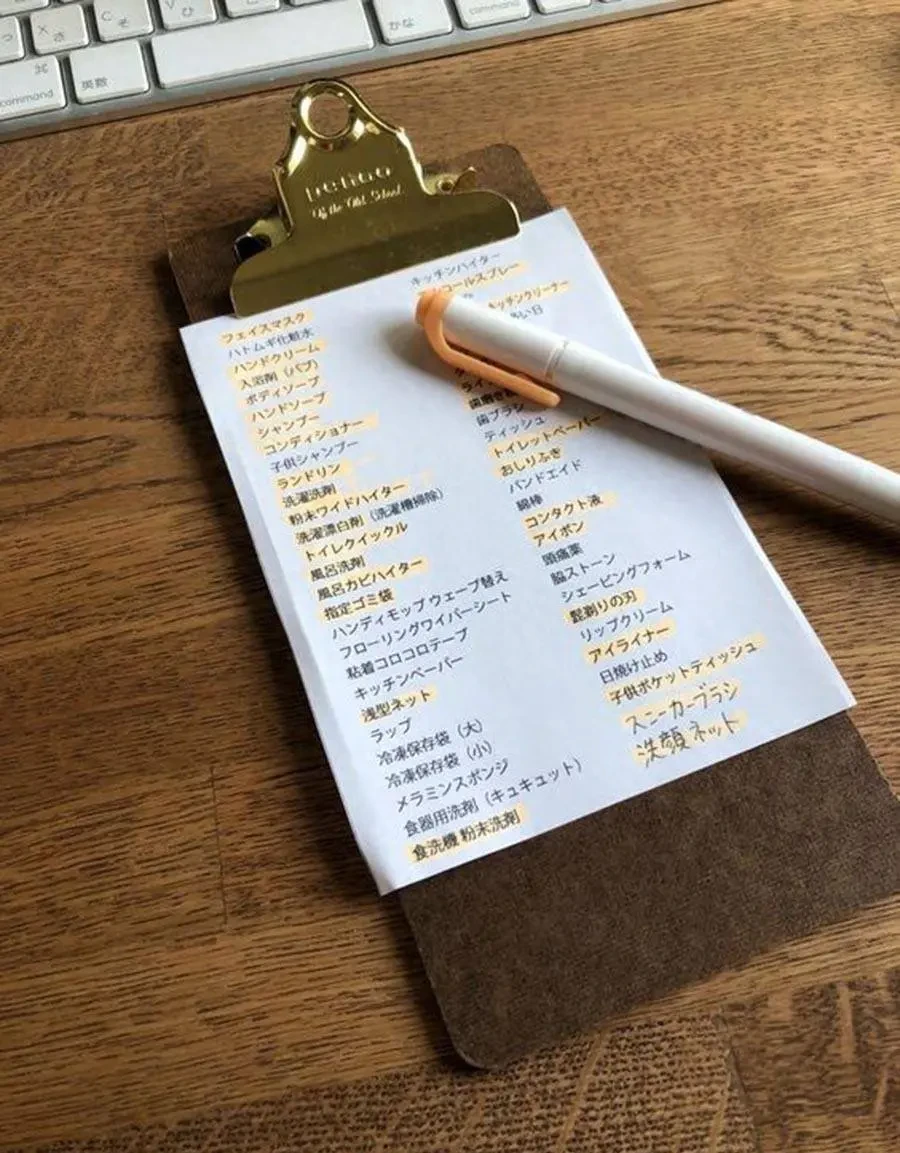 X
さ
C
そ
V
ひ
command
英数
かな
command
Penco
Of the Old School
フェイスマスク
ハトムギ化粧水
ハンドクリーム
入浴剤（バブ）
ボディソープ
ハンドソープ
シャンプー
コンディショナー
子供シャンプー
ランドリン
洗濯洗剤
粉末ワイドハイター
洗濯漂白剤（洗濯槽掃除）
トイレクイックル
風呂洗剤
風呂カビハイター
指定ゴミ袋
ハンディモップ ウェーブ替え
フローリングワイパーシート
粘着コロコロテープ
キッチンペーパー
浅型ネット
ラップ
冷凍保存袋（大）
冷凍保存袋（小）
メラミンスポンジ
食器用洗剤（キュキュット）
食洗機 粉末洗剤
キッチンハイター
コールスプレー
キッチンクリーナー
い日
歯磨き
歯ブラシ
ティッシュ
トイレットペーパー
おしりふき
バンドエイド
綿棒
コンタクト液
アイボン
頭痛薬
脇ストーン
シェービングフォーム
髭剃りの刃
リップクリーム
アイライナー
日焼け止め
子供ポケットティッシュ
スニーカーブラシ
洗顔ネット